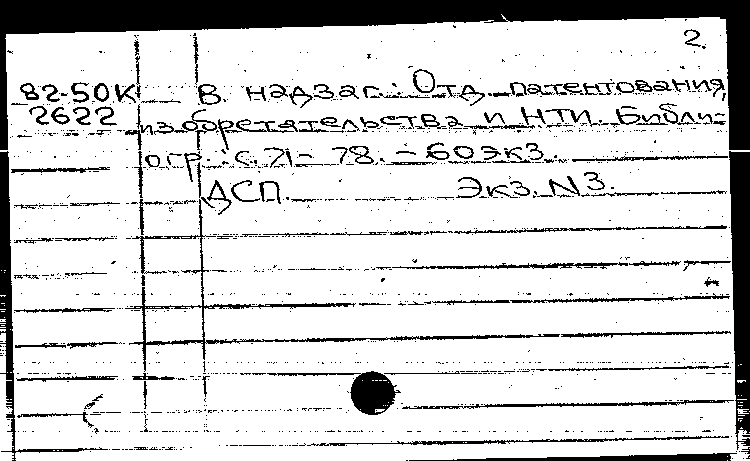 2.
82-50К В надзаг.: Отд. патентования,
2622 изобретательства и НТИ. Библи-
огр.: с. 71-78. - 60 экз.
ДСП. Экз. N3.